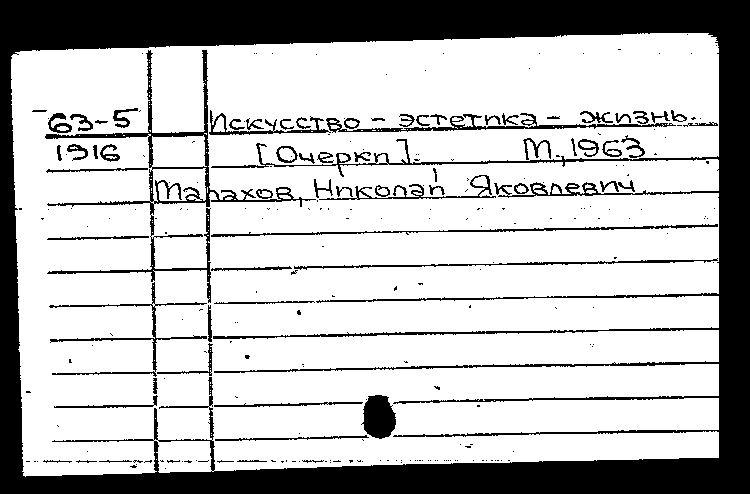 63-5 Искусство - эстетика - жизнь.
1916 [Очерки]. М., 1963
Малахов, Николай Яковлевич